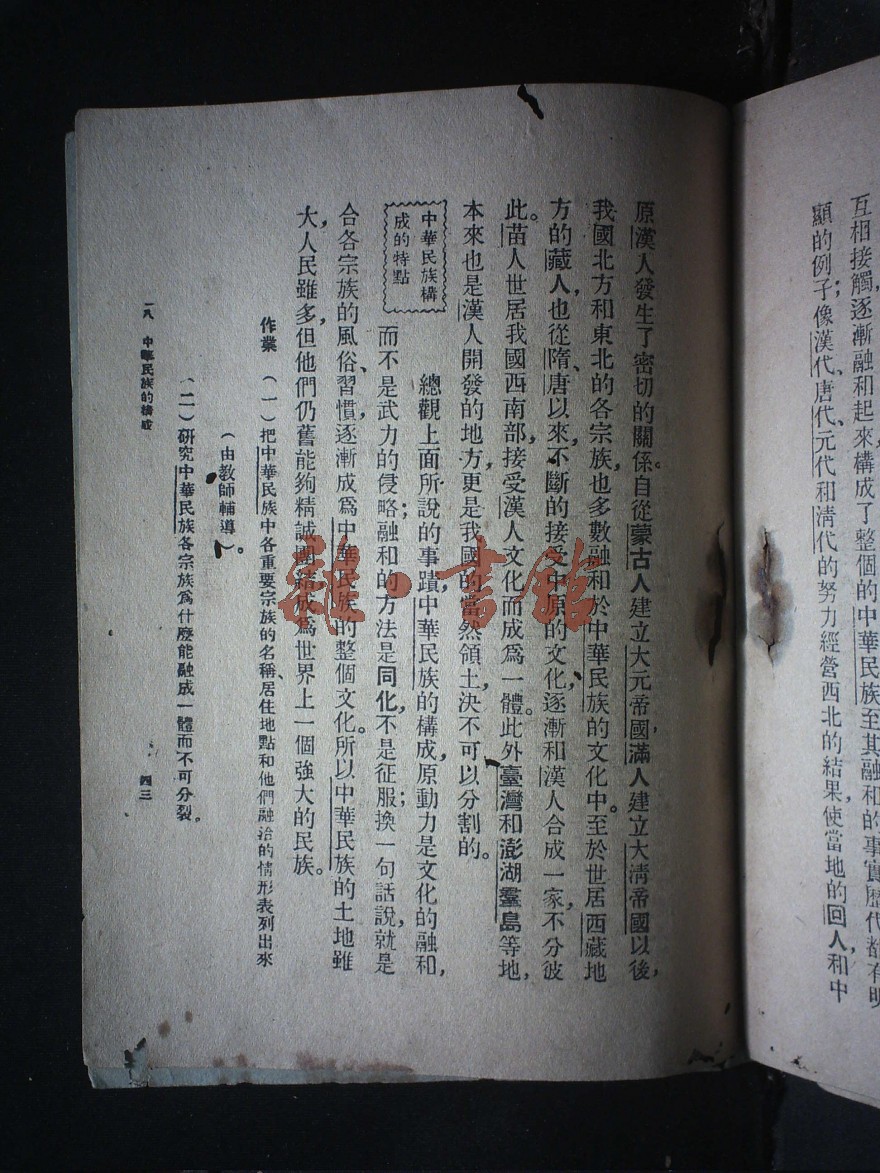 互相接觸，逐漸融和起來，構成了整個的中華民族。至其融和的事實，歷代都有明
顯的例子；像漢代、唐代、元代和清代的努力經營西北的結果，使當地的回人和中
原漢人發生了密切的關係。自從蒙古人建立大元帝國，滿人建立大清帝國以後，
我國北方和東北的各宗族，也多數融和於中華民族的文化中。至於世居西藏地
方的藏人，也從隋、唐以來，不斷的接受中原的文化，逐漸和漢人合成一家，不分彼
此。苗人世居我國西南部，接受漢人文化而成爲一體。此外臺灣和澎湖羣島等地，
本來也是漢人開發的地方，更是我國的當然領土，決不可以分割的。
中華民族構
成的特點
總觀上面所說的事蹟，中華民族的構成，原動力是文化的融和，
而不是武力的侵略；融和的方法是同化，不是征服；換一句話說，就是
合各宗族的風俗、習慣，逐漸成爲中華民族的整個文化。所以中華民族的土地雖
大，人民雖多，但他們仍舊能夠精誠團結，成爲世界上一個強大的民族。
作業　（一）把中華民族中各重要宗族的名稱、居住地點和他們融洽的情形表列出來
（由教師輔導）。
（二）研究中華民族各宗族爲什麼能融成一體而不可分裂。
一八　中華民族的構成
四三
雜·書館